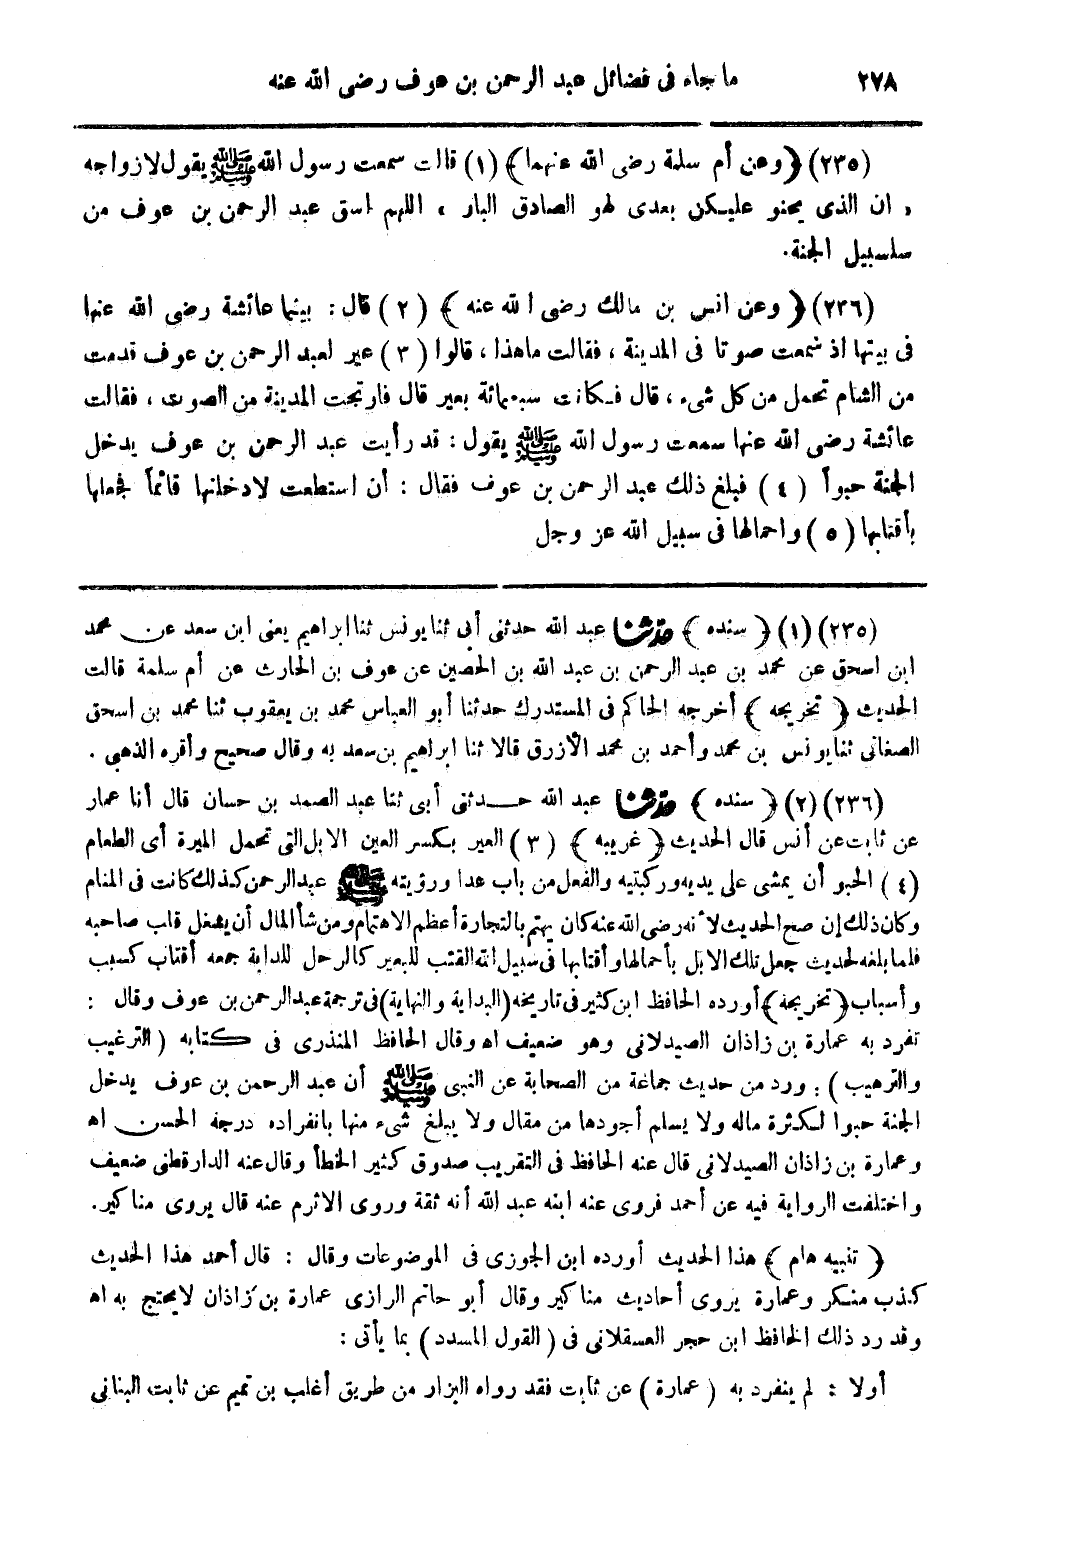 ٢٧٨ ما جاء فى فضائل عبد الرحمن بن عوف رضى الله عنه
(٢٣٥) ﴿ وعن أم سلمة رضى الله عنهما ﴾ (١) قالت سمعت رسول الله ﷺ يقول لازواجه
، ان الذى يحنو عليكن بعدى لهو الصادق البار ، اللهم اسق عبد الرحمن بن عوف من
سلسبيل الجنة.
(٢٣٦) ﴿ وعن انس بن مالك رضى الله عنه ﴾ (٢) قال : بينما عائشة رضى الله عنها
فى بيتها اذ سمعت صوتا فى المدينة ، فقالت ماهذا ، قالوا (٣) عير لعبد الرحمن بن عوف قدمت
من الشام تحمل من كل شىء ، قال فكانت سبعمائة بعير قال فارتجت المدينة من الصوت ، فقالت
عائشة رضى الله عنها سمعت رسول الله ﷺ يقول : قد رأيت عبد الرحمن بن عوف يدخل
الجنة حبوا (٤) فبلغ ذلك عبد الرحمن بن عوف فقال : أن استطعت لادخلنها قائماً فجعلها
بأقتابها (٥) واحمالها فى سبيل الله عز وجل
(٢٣٥) (١) ﴿ سنده ﴾ حدثنا عبد الله حدثنى أبى ثنا يونس ثنا ابراهيم يعنى ابن سعد عن محمد
ابن اسحق عن محمد بن عبد الرحمن بن عبد الله بن الحصين عن عوف بن الحارث عن أم سلمة قالت
الحديث ﴿ تخريجه ﴾ أخرجه الحاكم فى المستدرك حدثنا أبو العباس محمد بن يعقوب ثنا محمد بن اسحق
الصغانى ثنا يونس بن محمد وأحمد بن محمد الأزرق قالا ثنا ابراهيم بن سعد به وقال صحيح وأقره الذهبى .
(٢٣٦) (٢) ﴿ سنده ﴾ حدثنا عبد الله حدثنى أبى ثنا عبد الصمد بن حسان قال أنا عمار
عن ثابت عن أنس قال الحديث ﴿ غريبه ﴾ (٣) العير بكسر العين الابل التى تحمل الميرة أى الطعام
(٤) الحبو أن يمشى على يديه وركبتيه والفعل من باب عدا ورؤيته ﷺ عبد الرحمن كذلك كانت فى المنام
وكان ذلك إن صح الحديث لأنه رضى الله عنه كان يهتم بالتجارة أعظم الاهتمام ومن شأن المال أن يشغل قلب صاحبه
فلما بلغه لحديث جعل تلك الابل بأحمالها وأقتابها فى سبيل الله القتب للبعير كالرحل للدابة جمعه أقتاب كسبب
وأسباب ﴿ تخريجة ﴾ أورده الحافظ ابن كثير فى تاريخه (البداية والنهاية) فى ترجمة عبد الرحمن بن عوف وقال :
تفرد به عمارة بن زاذان الصيدلانى وهو ضعيف اه وقال الحافظ المنذرى فى كتابه (الترغيب
والترهيب) : ورد من حديث جماعة من الصحابة عن النبى ﷺ أن عبد الرحمن بن عوف يدخل
الجنة حبوا لكثرة ماله ولا يسلم أجودها من مقال ولا يبلغ شىء منها بانفراده درجة الحسن اه
وعمارة بن زاذان الصيدلانى قال عنه الحافظ فى التقريب صدوق كثير الخطأ وقال عنه الدارقطنى ضعيف
واختلفت الرواية فيه عن أحمد فروى عنه ابنه عبد الله أنه ثقة وروى الاثرم عنه قال يروى مناكير.
﴿ تنبيه هام ﴾ هذا الحديث أورده ابن الجوزى فى الموضوعات وقال : قال أحمد هذا الحديث
كذب منكر وعمارة يروى أحاديث مناكير وقال أبو حاتم الرازى عمارة بن زاذان لا يحتج به اه
وقد رد ذلك الحافظ ابن حجر العسقلانى فى (القول المسدد) بما يأتى :
أولا : لم ينفرد به (عمارة) عن ثابت فقد رواه البزار من طريق أغلب بن تميم عن ثابت البنانى